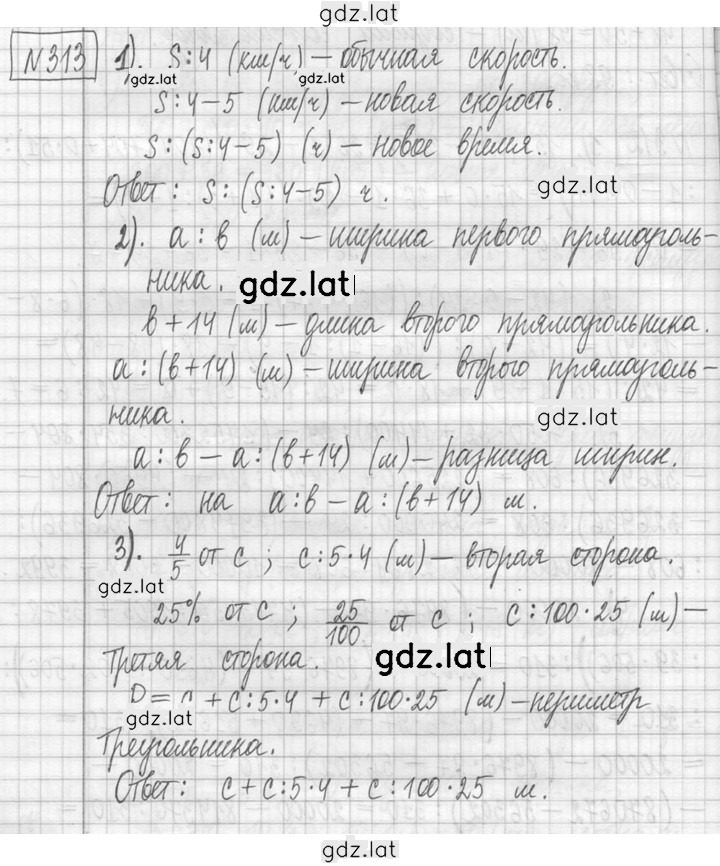 gdz.lat
№313 1). S:4 (км/ч) — обычная скорость.
gdz.lat gdz.lat
S:4-5 (км/ч) — новая скорость.
S:(S:4-5) (ч) — новое время.
Ответ: S:(S:4-5) ч. gdz.lat
2). a:в (м) — ширина первого прямоуголь-
ника. gdz.lat
в+14 (м) — длина второго прямоугольника.
a:(в+14) (м) — ширина второго прямоуголь-
ника. gdz.lat
a:в - a:(в+14) (м) — разница ширин.
Ответ: на a:в - a:(в+14) м.
3). 4/5 от с; с:5·4 (м) — вторая сторона.
gdz.lat
25% от с; 25/100 от с; с:100·25 (м) —
третяя сторона. gdz.lat
P = с + с:5·4 + с:100·25 (м) — периметр
gdz.lat
треугольника.
Ответ: с + с:5·4 + с:100·25 м.
gdz.lat